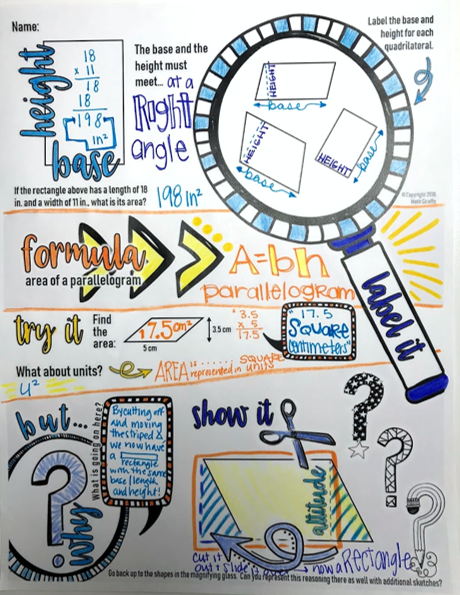 Name:
height
18
x 11
18
18
198
in²
base
The base and the
height must
meet... at a
Right
angle
Label the base and
height for each
quadrilateral.
HEIGHT
base
HEIGHT
base
HEIGHT
base
If the rectangle above has a length of 18
in. and a width of 11 in., what is its area? 198 in²
© Copyright 2018
Math Giraffe
formula
area of a parallelogram
A=bh
parallelogram
label it
try it
Find
the
area:
17.5cm²
3.5 cm
5 cm
3.5
x 5
17.5
"17.5
Square
centimeters"
What about units?
u²
AREA is ...... SQUARE
represented in units
but...
What is going on here?
Why
By cutting off
and moving
the striped
we now have
a
rectangle
with the same
base/length
and height!
show it
altitude
cut it
out + slide it over
now a Rectangle
Go back up to the shapes in the magnifying glass. Can you represent this reasoning there as well with additional sketches?